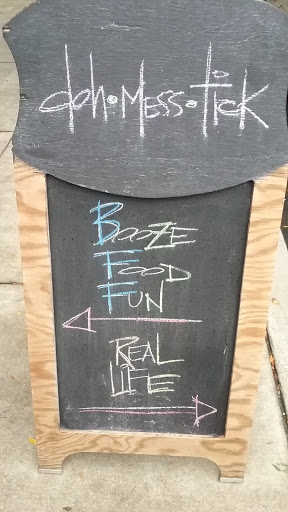 doh•mess•tick
BooZE
FooD
FuN
REAL
LiFE